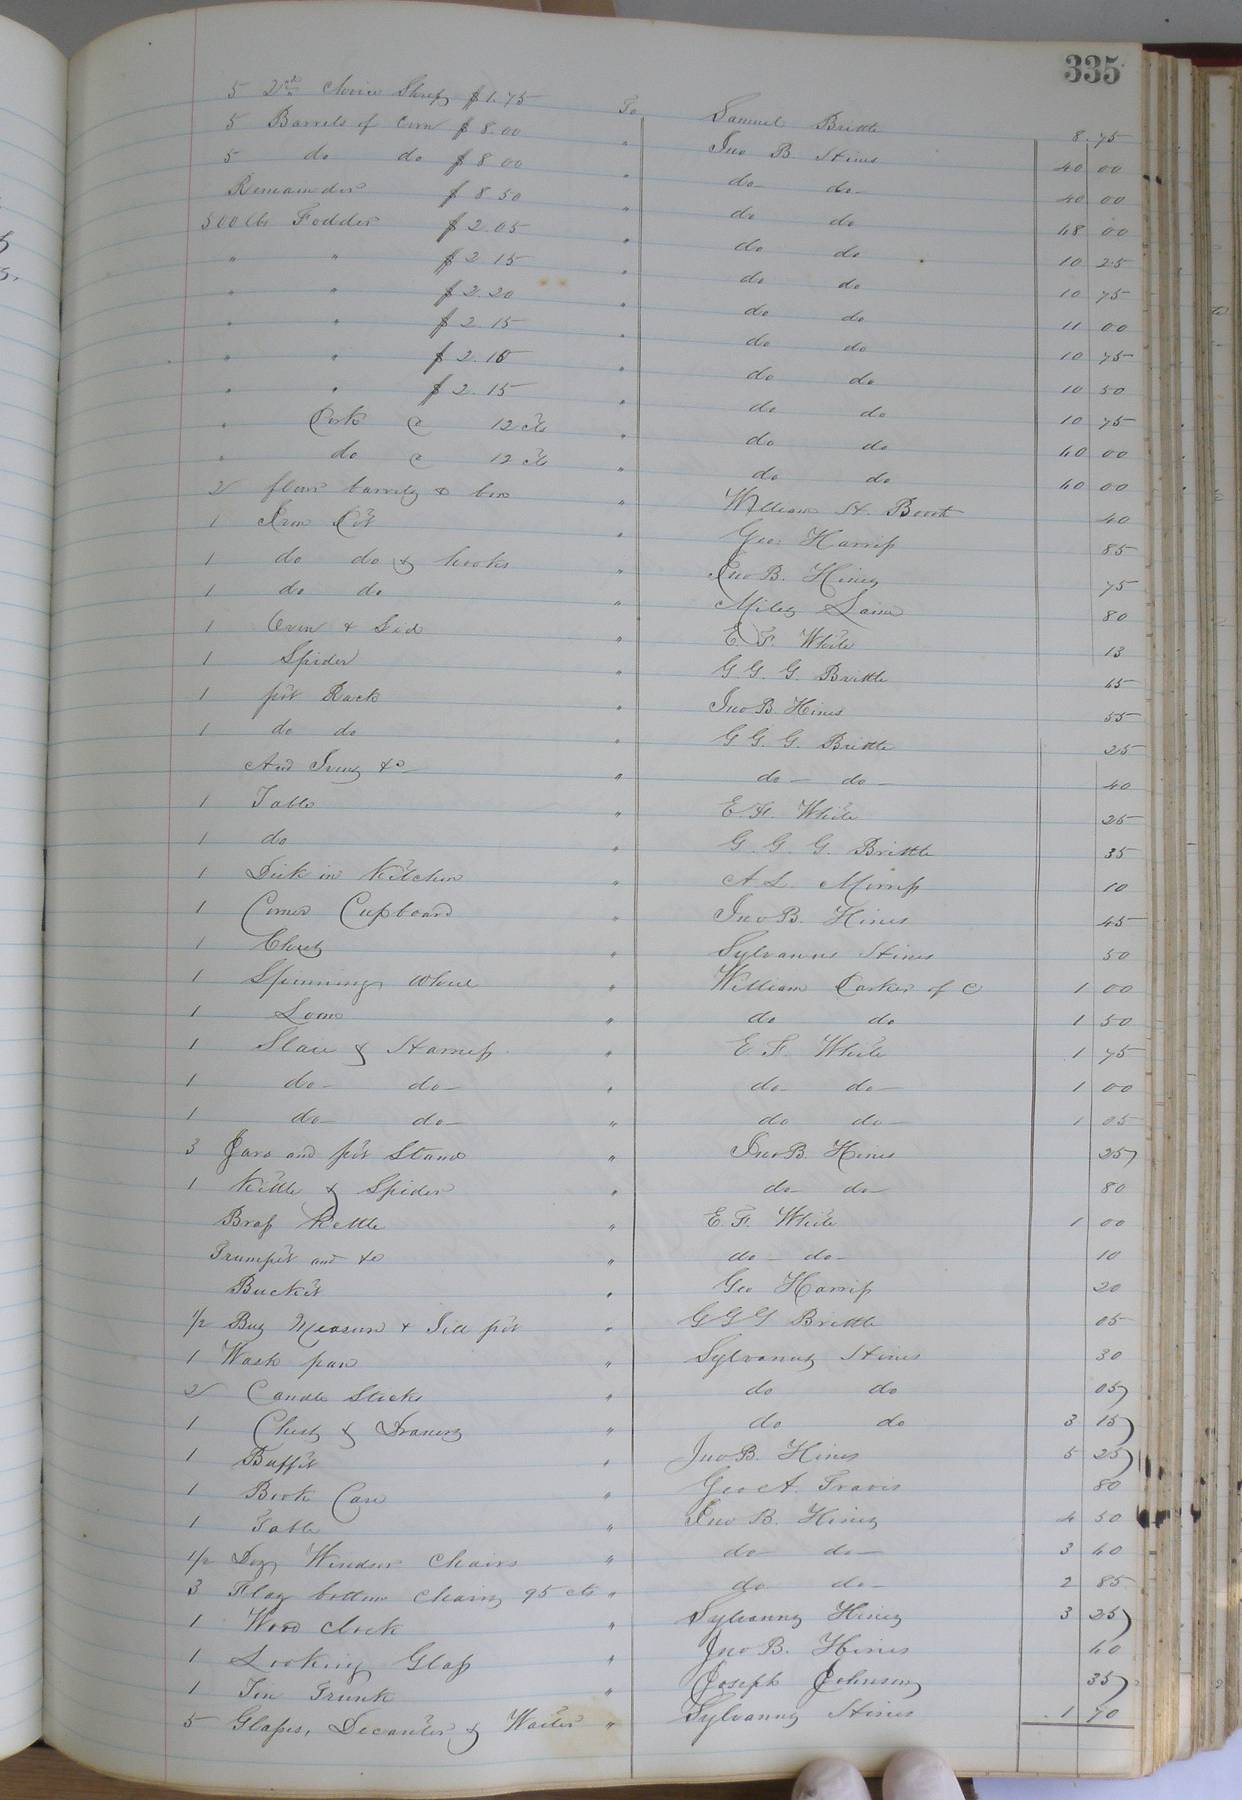 335
5 2nd choice Sheep $1.75 To Samuel Brittle 8.75
5 Barrels of Corn $8.00 " Jno B. Hines 40 00
5 do do $8.00 " do do 40 00
Remainder $8.50 " do do 48 00
500 lbs Fodder $2.05 " do do 10 25
" " $2.15 " do do 10 75
" " $2.20 " do do 11 00
" " $2.15 " do do 10 75
" " $2.10 " do do 10 50
" " $2.15 " do do 10 75
" Pork @ 12 cts " do do 60 00
" do @ 12 cts " do do 60 00
2 flour barrels & box " William H. 40
1 Iron Pot " Geo. Harriss 85
1 do do & hooks " Jno B. Hines 75
1 do do " Miles Lain 80
1 Oven & Lid " E. F. White 13
1 Spider " G. G. G. Brittle 65
1 pot Rack " Jno B. Hines 55
1 do do " G. G. G. Brittle 25
And Irons &c " do do 40
1 Table " E. F. White 25
1 do " G. G. G. Brittle 35
1 in Kitchen " A. L. 10
1 Corner Cupboard " Jno B. Hines 45
1 Chest " Sylvanus Hines 50
1 Spinning Wheel " William Parker of C 1 00
1 Loom " do do 1 50
1 Slaie & Harness " E. F. White 1 75
1 do do " do do 1 00
1 do do " do do 1 05
3 Jars and pot Stand " Jno B. Hines 25
1 Kettle & Spider " do do 80
Brass Kettle " E. F. White 1 00
Trumpet and &c " do do 10
Bucket " Geo Harriss 20
1/2 Bus Measure & pot " G G G Brittle 05
1 Wash pan " Sylvanus Hines 30
2 Candle Sticks " do do 05
1 Chest & Drawers " do do 3 15
1 Buffet " Jno B. Hines 5 25
1 Book Case " Geo A. Travis 80
1 Table " Jno B. Hines 4 50
1/2 Doz Windsor Chairs " do do 3 40
3 Flag bottom Chairs 95 cts " do do 2 85
1 Wood Clock " Sylvanus Hines 3 25
1 Looking Glass " Jno B. Hines 40
1 Tin Trunk " Joseph Johnson 35
5 Glasses, Decanter & Waiter " Sylvanus Hines 1 70